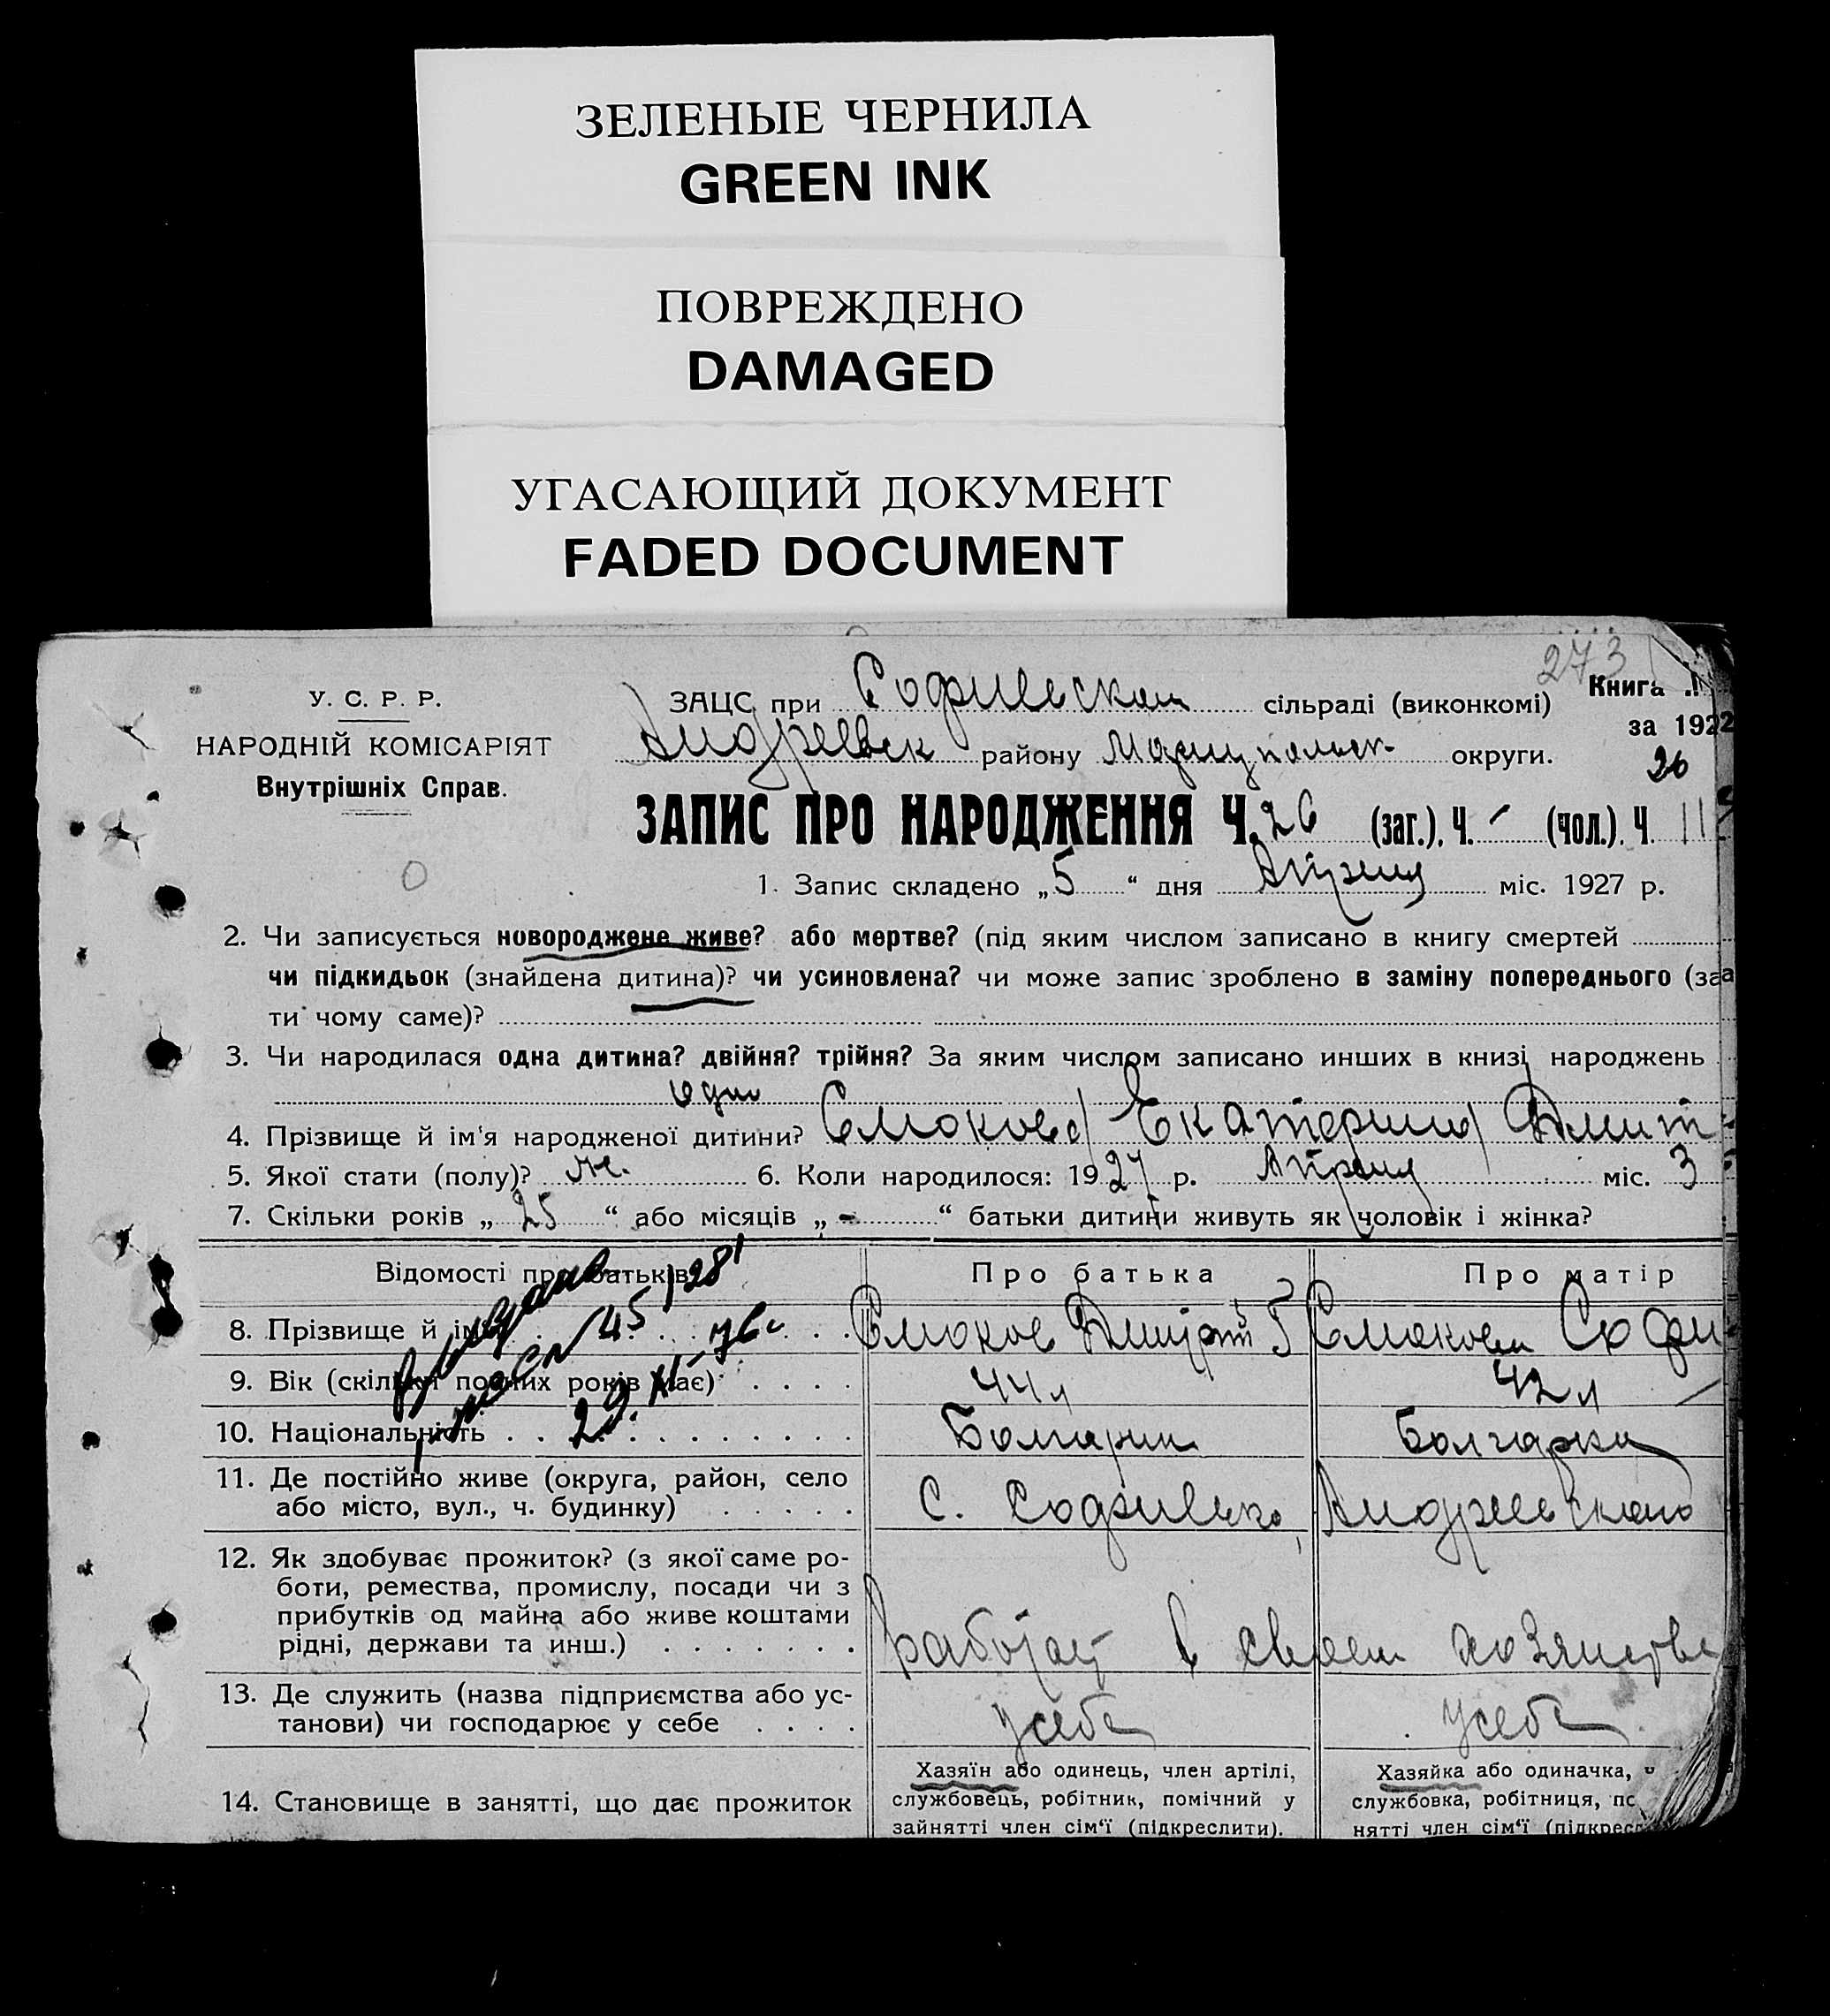 ЗЕЛЕНЫЕ ЧЕРНИЛА
GREEN INK
ПОВРЕЖДЕНО
DAMAGED
УГАСАЮЩИЙ ДОКУМЕНТ
FADED DOCUMENT
273
У. С. Р. Р.
НАРОДНІЙ КОМІСАРІЯТ
Внутрішніх Справ.
ЗАЦС при Софиевском сільраді (виконкомі)
Книга
за 192
Андреевск району Мариупольск округи.
26
ЗАПИС ПРО НАРОДЖЕННЯ Ч. 26 (заг.), Ч. - (чол.), Ч. 11
1. Запис складено „ 5 “ дня Апреля міс. 1927 р.
2. Чи записується новороджене живе? або мертве? (під яким числом записано в книгу смертей
чи підкидьок (знайдена дитина)? чи усиновлена? чи може запис зроблено в заміну попереднього (за
ти чому саме)?
3. Чи народилася одна дитина? двійня? трійня? За яким числом записано инших в книзі народжень
одно
4. Прізвище й ім'я народженої дитини? Смокова Екатерина Дмит
5. Якої стати (полу)? ж. 6. Коли народилося: 1927 р. Апреля міс. 3
7. Скільки років „ 25 “ або місяців „ - “ батьки дитини живуть як чоловік і жінка?
Відомості про батьків Про батька Про матір
8. Прізвище й ім'я Смоков Дмитрий Г Смокова Софи
9. Вік (скільки повних років має) 44 л 42 л
10. Національність Болгарин Болгарка
11. Де постійно живе (округа, район, село
або місто, вул., ч. будинку) с. Софиевка, Андреевского
12. Як здобуває прожиток? (з якої саме ро-
боти, ремества, промислу, посади чи з
прибутків од майна або живе коштами
рідні, держави та инш.) работает в своем хозяйстве
13. Де служить (назва підприємства або ус-
танови) чи господарює у себе у себя у себя
14. Становище в занятті, що дає прожиток
Хазяїн або одинець, член артілі,
службовець, робітник, помічний у
зайнятті член сім'ї (підкреслити).
Хазяйка або одиначка,
службовка, робітниця,
нятті член сім'ї
29. XI-76 г